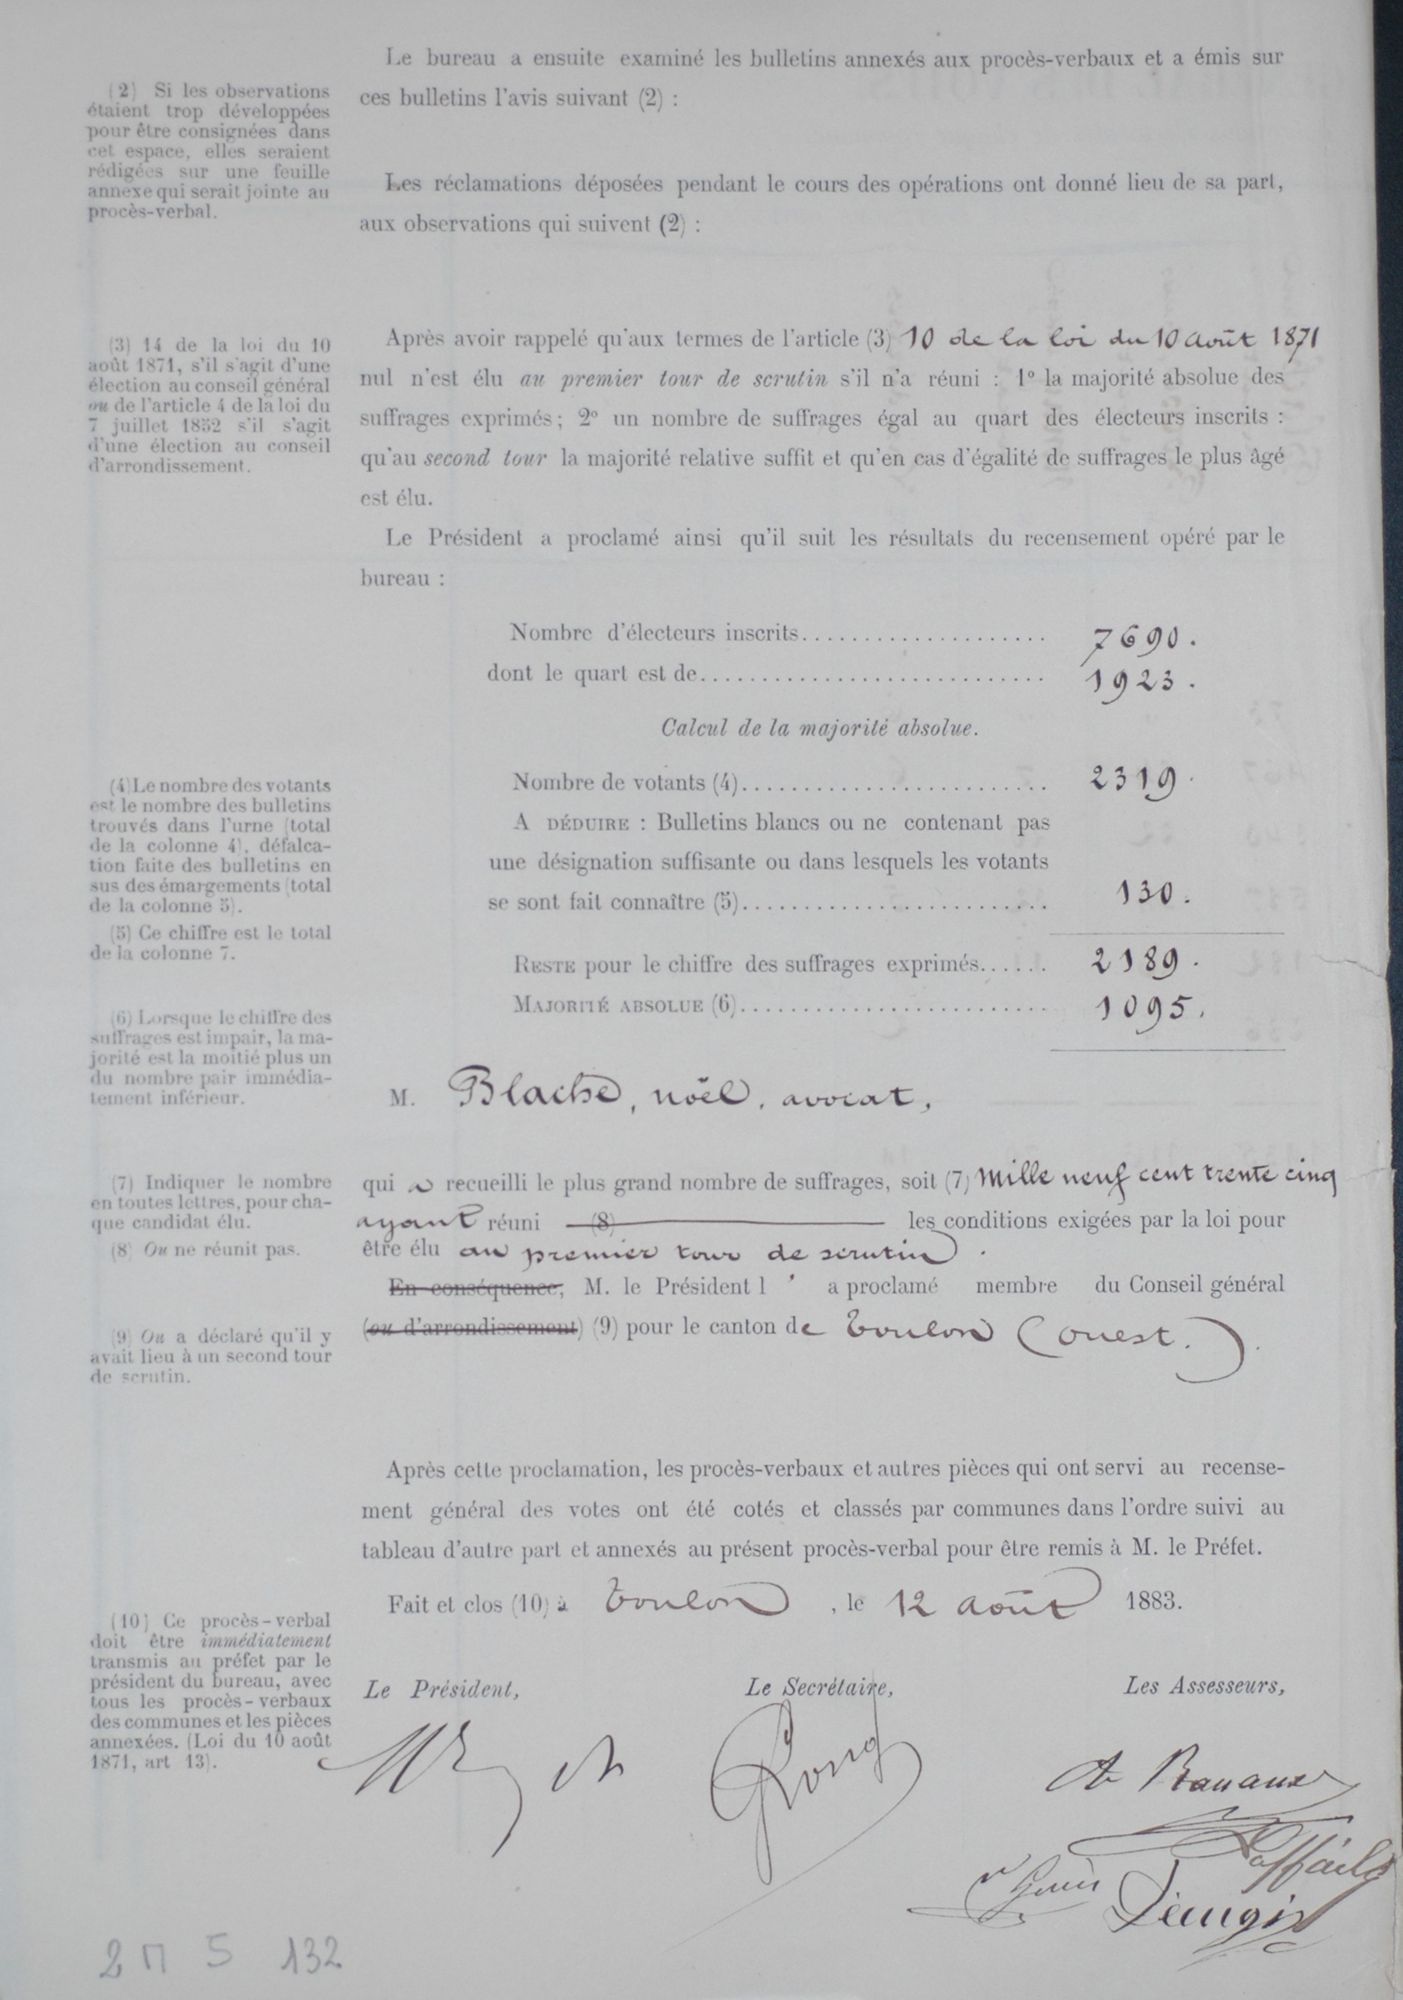 Le bureau a ensuite examiné les bulletins annexés aux procès-verbaux et a émis sur
ces bulletins l'avis suivant (2) :
(2) Si les observations
étaient trop développées
pour être consignées dans
cet espace, elles seraient
rédigées sur une feuille
annexe qui serait jointe au
procès-verbal.
Les réclamations déposées pendant le cours des opérations ont donné lieu de sa part,
aux observations qui suivent (2) :
(3) 14 de la loi du 10
août 1871, s'il s'agit d'une
élection au conseil général
ou de l'article 4 de la loi du
7 juillet 1852 s'il s'agit
d'une élection au conseil
d'arrondissement.
Après avoir rappelé qu'aux termes de l'article (3) 10 de la loi du 10 août 1871
nul n'est élu au premier tour de scrutin s'il n'a réuni : 1º la majorité absolue des
suffrages exprimés ; 2º un nombre de suffrages égal au quart des électeurs inscrits :
qu'au second tour la majorité relative suffit et qu'en cas d'égalité de suffrages le plus âgé
est élu.
Le Président a proclamé ainsi qu'il suit les résultats du recensement opéré par le
bureau :
Nombre d'électeurs inscrits..................... 7690.
dont le quart est de............................ 1923.
Calcul de la majorité absolue.
(4) Le nombre des votants
est le nombre des bulletins
trouvés dans l'urne (total
de la colonne 4), défalca-
tion faite des bulletins en
sus des émargements (total
de la colonne 5).
(5) Ce chiffre est le total
de la colonne 7.
Nombre de votants (4)......................... 2319.
A DÉDUIRE : Bulletins blancs ou ne contenant pas
une désignation suffisante ou dans lesquels les votants
se sont fait connaître (5)......................... 130.
RESTE pour le chiffre des suffrages exprimés...... 2189.
MAJORITÉ ABSOLUE (6)......................... 1095.
(6) Lorsque le chiffre des
suffrages est impair, la ma-
jorité est la moitié plus un
du nombre pair immédia-
tement inférieur.
M. Blache, noël, avocat,
(7) Indiquer le nombre
en toutes lettres, pour cha-
que candidat élu.
(8) Ou ne réunit pas.
qui a recueilli le plus grand nombre de suffrages, soit (7) Mille neuf cent trente cinq
ayant réuni (8) les conditions exigées par la loi pour
être élu au premier tour de scrutin.
En conséquence, M. le Président l' a proclamé membre du Conseil général
(ou d'arrondissement) (9) pour le canton de Toulon (ouest.).
(9) Ou a déclaré qu'il y
avait lieu à un second tour
de scrutin.
Après cette proclamation, les procès-verbaux et autres pièces qui ont servi au recense-
ment général des votes ont été cotés et classés par communes dans l'ordre suivi au
tableau d'autre part et annexés au présent procès-verbal pour être remis à M. le Préfet.
Fait et clos (10) à Toulon, le 12 août 1883.
(10) Ce procès-verbal
doit être immédiatement
transmis au préfet par le
président du bureau, avec
tous les procès-verbaux
des communes et les pièces
annexées. (Loi du 10 août
1871, art 13).
Le Président, Le Secrétaire, Les Assesseurs,
2 M 5 132